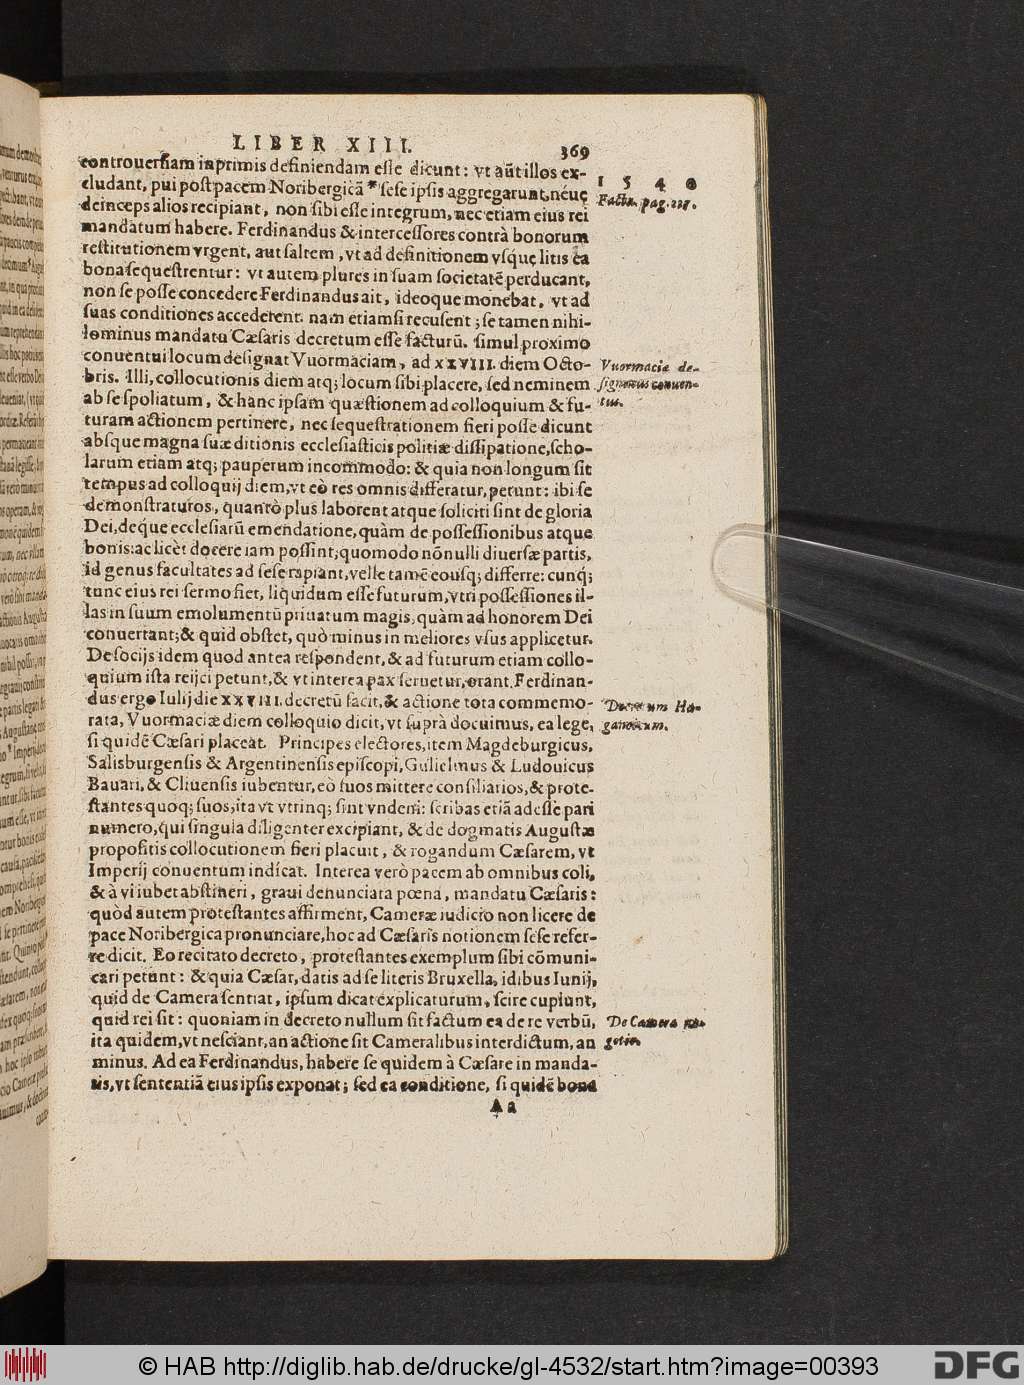 LIBER XIII.
369
controuersiam inprimis definiendam esse dicunt: vt aūt illos ex-
cludant, qui post pacem Noribergicā * sese ipsis aggregarunt, néue
deinceps alios recipiant, non sibi esse integrum, nec etiam eius rei
mandatum habere. Ferdinandus & intercessores contrà bonorum
restitutionem vrgent, aut saltem, vt ad definitionem vsq́ue litis ea
bona sequestrentur: vt autem plures in suam societatē perducant,
non se posse concedere Ferdinandus ait, ideoque monebat, vt ad
suas conditiones accederent. nam etiamsi recusent; se tamen nihi-
lominus mandatu Cæsaris decretum esse facturū. simul proximo
conuentui locum designat Vuormaciam, ad XXVIII. diem Octo-
bris. Illi, collocutionis diem atq; locum sibi placere, sed neminem
ab se spoliatum, & hanc ipsam quæstionem ad colloquium & fu-
turam actionem pertinere, nec sequestrationem fieri posse dicunt
absque magna suæ ditionis ecclesiasticis politiæ dissipatione, scho-
larum etiam atq; pauperum incommodo: & quia non longum sit
tempus ad colloquij diem, vt eò res omnis differatur, petunt: ibi se
demonstraturos, quantò plus laborent atque soliciti sint de gloria
Dei, deque ecclesiarū emendatione, quàm de possessionibus atque
bonis: ac licèt docere iam possint, quomodo nōnulli diuersæ partis,
id genus facultates ad sese rapiant, velle tamē eousq; differre: cunq́;
tunc eius rei sermo fiet, liquidum esse futurum, vtri possessiones il-
las in suum emolumentū priuatum magis, quàm ad honorem Dei
conuertant; & quid obstet, quò minus in meliores vsus applicetur.
De socijs idem quod antea respondent, & ad futurum etiam collo-
quium ista reijci petunt, & vt interea pax seruetur, orant. Ferdinan-
dus ergo Iulij die XXVIII. decretū facit, & actione tota commemo-
rata, Vuormaciæ diem colloquio dicit, vt suprà docuimus, ea lege,
si quidē Cæsari placeat. Principes electores, item Magdeburgicus,
Salisburgensis & Argentinensis episcopi, Gulielmus & Ludouicus
Bauari, & Cliuensis iubentur, eò suos mittere consiliarios, & prote-
stantes quoq; suos, ita vt vtrinq; sint vndeni: scribas etiā adesse pari
numero, qui singula diligenter excipiant, & de dogmatis Augustæ
propositis collocutionem fieri placuit, & rogandum Cæsarem, vt
Imperij conuentum indicat. Interea verò pacem ab omnibus coli,
& à vi iubet abstineri, graui denunciata pœna, mandatu Cæsaris:
quòd autem protestantes affirment, Cameræ iudicio non licere de
pace Noribergica pronunciare, hoc ad Cæsaris notionem sese refer-
re dicit. Eo recitato decreto, protestantes exemplum sibi cōmuni-
cari petunt: & quia Cæsar, datis ad se literis Bruxella, idibus Iunij,
quid de Camera sentiat, ipsum dicat explicaturum, scire cupiunt,
quid rei sit: quoniam in decreto nullum sit factum ea de re verbū,
ita quidem, vt nesciant, an actione sit Cameralibus interdictum, an
minus. Ad ea Ferdinandus, habere se quidem à Cæsare in manda-
tis, vt sententiā eius ipsis exponat; sed ea conditione, si quidē bona
Aa
1540
Facta. pag.
Vuormacia de-
signatus conuen-
tus.
Decretum Ha-
ganoënum.
De Camera ne-
gotio.
© HAB http://diglib.hab.de/drucke/gl-4532/start.htm?image=00393
DFG